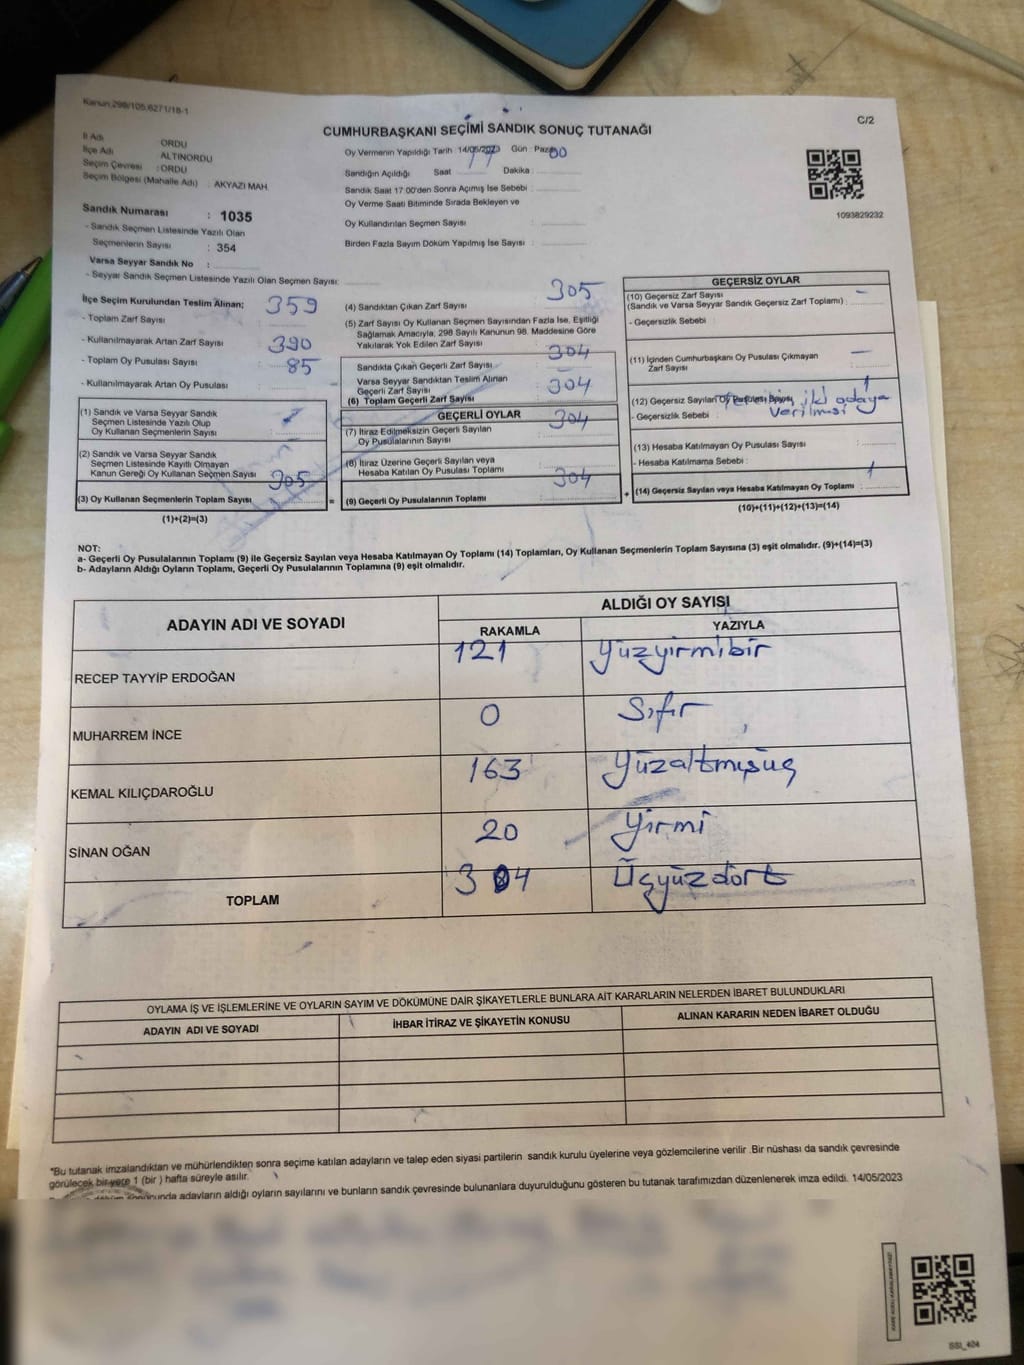 Kanun 298/105,6271/18-1
C/2
CUMHURBAŞKANI SEÇİMİ SANDIK SONUÇ TUTANAĞI
İl Adı : ORDU
İlçe Adı : ALTINORDU
Seçim Çevresi : ORDU
Seçim Bölgesi (Mahalle Adı) : AKYAZI MAH
Sandık Numarası : 1035
- Sandık Seçmen Listesinde Yazılı Olan
Seçmenlerin Sayısı : 354
Varsa Seyyar Sandık No :
- Seyyar Sandık Seçmen Listesinde Yazılı Olan Seçmen Sayısı:
Oy Vermenin Yapıldığı Tarih 14/05/2023 Gün : Pazar
Sandığın Açıldığı Saat 17 Dakika : 00
Sandık Saat 17:00'den Sonra Açmış İse Sebebi :
Oy Verme Saati Bitiminde Sırada Bekleyen ve
Oy Kullandırılan Seçmen Sayısı :
Birden Fazla Sayım Döküm Yapılmış İse Sayısı :
1093829232
İlçe Seçim Kurulundan Teslim Alınan;
- Toplam Zarf Sayısı : 359
- Kullanılmayarak Artan Zarf Sayısı :
- Toplam Oy Pusulası Sayısı : 390
- Kullanılmayarak Artan Oy Pusulası : 85
(1) Sandık ve Varsa Seyyar Sandık
Seçmen Listesinde Yazılı Olup
Oy Kullanan Seçmenlerin Sayısı :
(2) Sandık ve Varsa Seyyar Sandık
Seçmen Listesinde Kayıtlı Olmayan
Kanun Gereği Oy Kullanan Seçmen Sayısı :
(3) Oy Kullanan Seçmenlerin Toplam Sayısı : 305
(1)+(2)=(3)
(4) Sandıktan Çıkan Zarf Sayısı : 305
(5) Zarf Sayısı Oy Kullanan Seçmen Sayısından Fazla İse, Eşitliği
Sağlamak Amacıyla, 298 Sayılı Kanunun 98. Maddesine Göre
Yakılarak Yok Edilen Zarf Sayısı :
Sandıkta Çıkan Geçerli Zarf Sayısı : 304
Varsa Seyyar Sandıktan Teslim Alınan
Geçerli Zarf Sayısı :
(6) Toplam Geçerli Zarf Sayısı : 304
GEÇERLİ OYLAR
(7) İtiraz Edilmeksizin Geçerli Sayılan
Oy Pusulalarının Sayısı : 304
(8) İtiraz Üzerine Geçerli Sayılan veya
Hesaba Katılan Oy Pusulası Toplamı :
= (9) Geçerli Oy Pusulalarının Toplamı : 304
GEÇERSİZ OYLAR
(10) Geçersiz Zarf Sayısı
(Sandık ve Varsa Seyyar Sandık Geçersiz Zarf Toplamı) : -
- Geçersizlik Sebebi :
(11) İçinden Cumhurbaşkanı Oy Pusulası Çıkmayan
Zarf Sayısı : -
(12) Geçersiz Sayılan Oy Pusulası Sayısı : 1
- Geçersizlik Sebebi : iki adaya
verilmesi
(13) Hesaba Katılmayan Oy Pusulası Sayısı :
- Hesaba Katılmama Sebebi :
+ (14) Geçersiz Sayılan veya Hesaba Katılmayan Oy Toplamı : 1
(10)+(11)+(12)+(13)=(14)
NOT:
a- Geçerli Oy Pusulalarının Toplamı (9) ile Geçersiz Sayılan veya Hesaba Katılmayan Oy Toplamı (14) Toplamları, Oy Kullanan Seçmenlerin Toplam Sayısına (3) eşit olmalıdır. (9)+(14)=(3)
b- Adayların Aldığı Oyların Toplamı, Geçerli Oy Pusulalarının Toplamına (9) eşit olmalıdır.
ADAYIN ADI VE SOYADI
ALDIĞI OY SAYISI
RAKAMLA YAZIYLA
RECEP TAYYİP ERDOĞAN 121 Yüzyirmibir
MUHARREM İNCE 0 Sıfır
KEMAL KILIÇDAROĞLU 163 Yüzaltmışüç
SİNAN OĞAN 20 Yirmi
TOPLAM 304 Üçyüzdört
OYLAMA İŞ VE İŞLEMLERİNE VE OYLARIN SAYIM VE DÖKÜMÜNE DAİR ŞİKAYETLERLE BUNLARA AİT KARARLARIN NELERDEN İBARET BULUNDUKLARI
ADAYIN ADI VE SOYADI İHBAR İTİRAZ VE ŞİKAYETİN KONUSU ALINAN KARARIN NEDEN İBARET OLDUĞU
"Bu tutanak imzalandıktan ve mühürlendikten sonra seçime katılan adayların ve talep eden siyasi partilerin sandık kurulu üyelerine veya gözlemcilerine verilir .Bir nüshası da sandık çevresinde
görülecek bir yere 1 (bir ) hafta süreyle asılır.
sonunda adayların aldığı oyların sayılarını ve bunların sandık çevresinde bulunanlara duyurulduğunu gösteren bu tutanak tarafımızdan düzenlenerek imza edildi. 14/05/2023